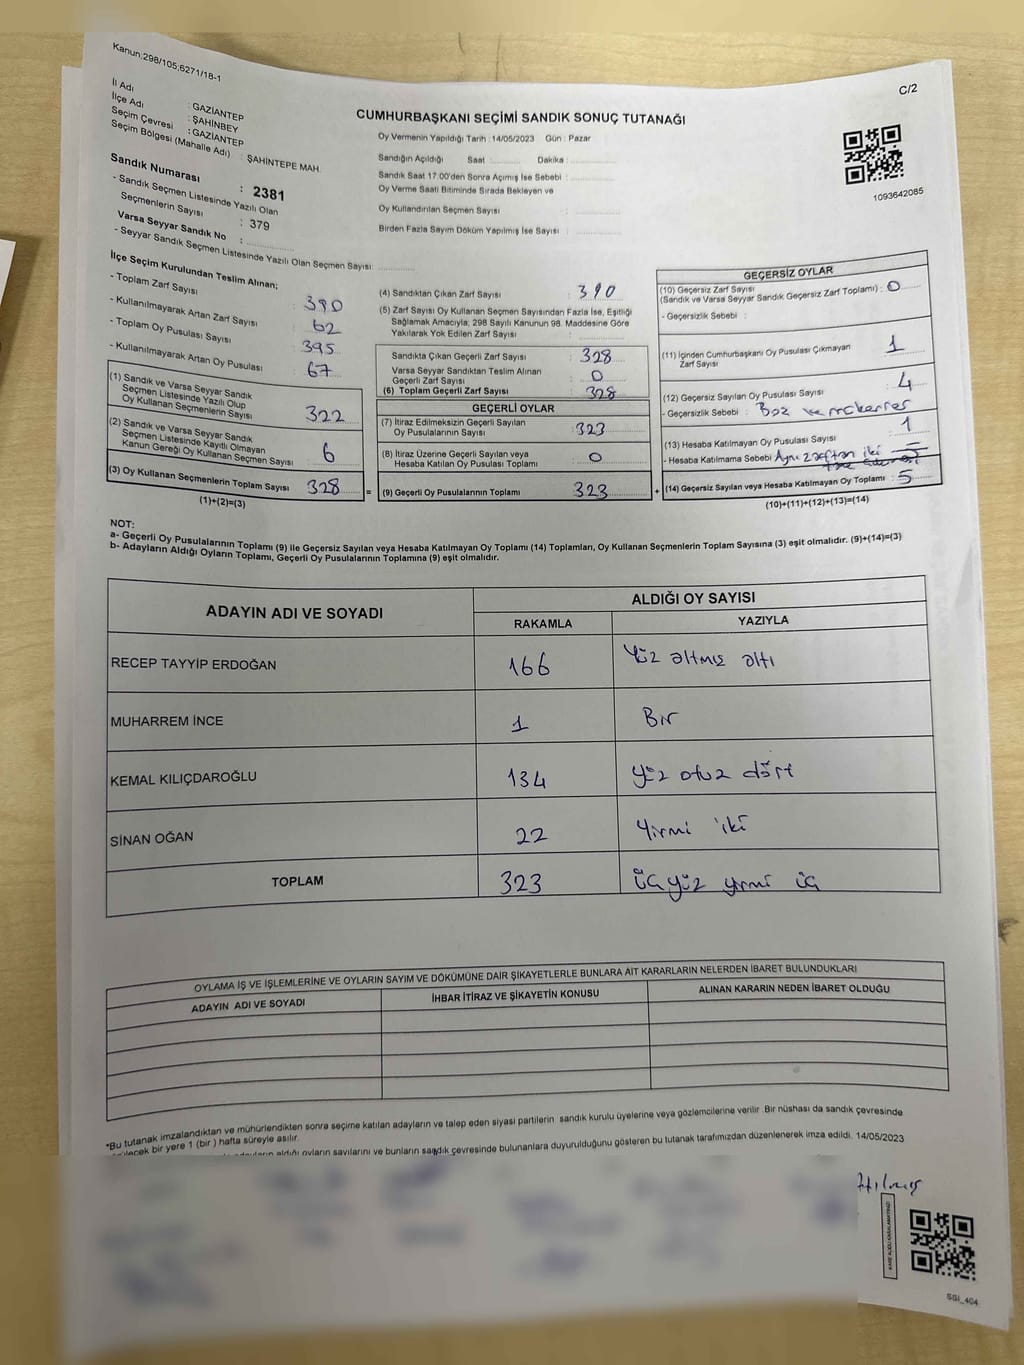 Kanun;298/105;6271/18-1
C/2
İl Adı : GAZİANTEP
İlçe Adı : ŞAHİNBEY
Seçim Çevresi : GAZİANTEP
Seçim Bölgesi (Mahalle Adı) : ŞAHİNTEPE MAH.
Sandık Numarası : 2381
- Sandık Seçmen Listesinde Yazılı Olan
Seçmenlerin Sayısı : 379
Varsa Seyyar Sandık No :
- Seyyar Sandık Seçmen Listesinde Yazılı Olan Seçmen Sayısı:
CUMHURBAŞKANI SEÇİMİ SANDIK SONUÇ TUTANAĞI
Oy Vermenin Yapıldığı Tarih :14/05/2023 Gün : Pazar
Sandığın Açıldığı Saat : Dakika :
Sandık Saat 17.00'den Sonra Açımış İse Sebebi :
Oy Verme Saati Bitiminde Sırada Bekleyen ve
Oy Kullandırılan Seçmen Sayısı :
Birden Fazla Sayım Döküm Yapılmış İse Sayısı :
1093642085
İlçe Seçim Kurulundan Teslim Alınan;
- Toplam Zarf Sayısı : 390
- Kullanılmayarak Artan Zarf Sayısı : 62
- Toplam Oy Pusulası Sayısı : 395
- Kullanılmayarak Artan Oy Pusulası : 67
(1) Sandık ve Varsa Seyyar Sandık
Seçmen Listesinde Yazılı Olup
Oy Kullanan Seçmenlerin Sayısı : 322
(2) Sandık ve Varsa Seyyar Sandık
Seçmen Listesinde Kayıtlı Olmayan
Kanun Gereği Oy Kullanan Seçmen Sayısı : 6
(3) Oy Kullanan Seçmenlerin Toplam Sayısı : 328
(1)+(2)=(3)
(4) Sandıktan Çıkan Zarf Sayısı : 390
(5) Zarf Sayısı Oy Kullanan Seçmen Sayısından Fazla İse, Eşitliği
Sağlamak Amacıyla; 298 Sayılı Kanunun 98. Maddesine Göre
Yakılarak Yok Edilen Zarf Sayısı :
Sandıkta Çıkan Geçerli Zarf Sayısı : 328
Varsa Seyyar Sandıktan Teslim Alınan
Geçerli Zarf Sayısı : 0
(6) Toplam Geçerli Zarf Sayısı : 328
GEÇERLİ OYLAR
(7) İtiraz Edilmeksizin Geçerli Sayılan
Oy Pusulalarının Sayısı : 323
(8) İtiraz Üzerine Geçerli Sayılan veya
Hesaba Katılan Oy Pusulası Toplamı : 0
= (9) Geçerli Oy Pusulalarının Toplamı : 323 +
GEÇERSİZ OYLAR
(10) Geçersiz Zarf Sayısı
(Sandık ve Varsa Seyyar Sandık Geçersiz Zarf Toplamı) : 0
- Geçersizlik Sebebi :
(11) İçinden Cumhurbaşkanı Oy Pusulası Çıkmayan
Zarf Sayısı : 1
(12) Geçersiz Sayılan Oy Pusulası Sayısı : 4
- Geçersizlik Sebebi :
(13) Hesaba Katılmayan Oy Pusulası Sayısı : 1
- Hesaba Katılmama Sebebi : Aynı zarftan iki
(14) Geçersiz Sayılan veya Hesaba Katılmayan Oy Toplamı : 5
(10)+(11)+(12)+(13)=(14)
NOT:
a- Geçerli Oy Pusulalarının Toplamı (9) ile Geçersiz Sayılan veya Hesaba Katılmayan Oy Toplamı (14) Toplamları, Oy Kullanan Seçmenlerin Toplam Sayısına (3) eşit olmalıdır. (9)+(14)=(3)
b- Adayların Aldığı Oyların Toplamı, Geçerli Oy Pusulalarının Toplamına (9) eşit olmalıdır.
ADAYIN ADI VE SOYADI ALDIĞI OY SAYISI
RAKAMLA YAZIYLA
RECEP TAYYİP ERDOĞAN 166 Yüz altmış altı
MUHARREM İNCE 1 Bir
KEMAL KILIÇDAROĞLU 134 yüz otuz dört
SİNAN OĞAN 22 Yirmi iki
TOPLAM 323 üçyüz yirmi üç
OYLAMA İŞ VE İŞLEMLERİNE VE OYLARIN SAYIM VE DÖKÜMÜNE DAİR ŞİKAYETLERLE BUNLARA AİT KARARLARIN NELERDEN İBARET BULUNDUKLARI
ADAYIN ADI VE SOYADI İHBAR İTİRAZ VE ŞİKAYETİN KONUSU ALINAN KARARIN NEDEN İBARET OLDUĞU
*Bu tutanak imzalandıktan ve mühürlendikten sonra seçime katılan adayların ve talep eden siyasi partilerin sandık kurulu üyelerine veya gözlemcilerine verilir .Bir nüshası da sandık çevresinde
bir yere 1 (bir ) hafta süreyle asılır.
aldığı oyların sayılarını ve bunların sandık çevresinde bulunanlara duyurulduğunu gösteren bu tutanak tarafımızdan düzenlenerek imza edildi. 14/05/2023
KARE KODU KARALAMAYINIZ!
SGI_404